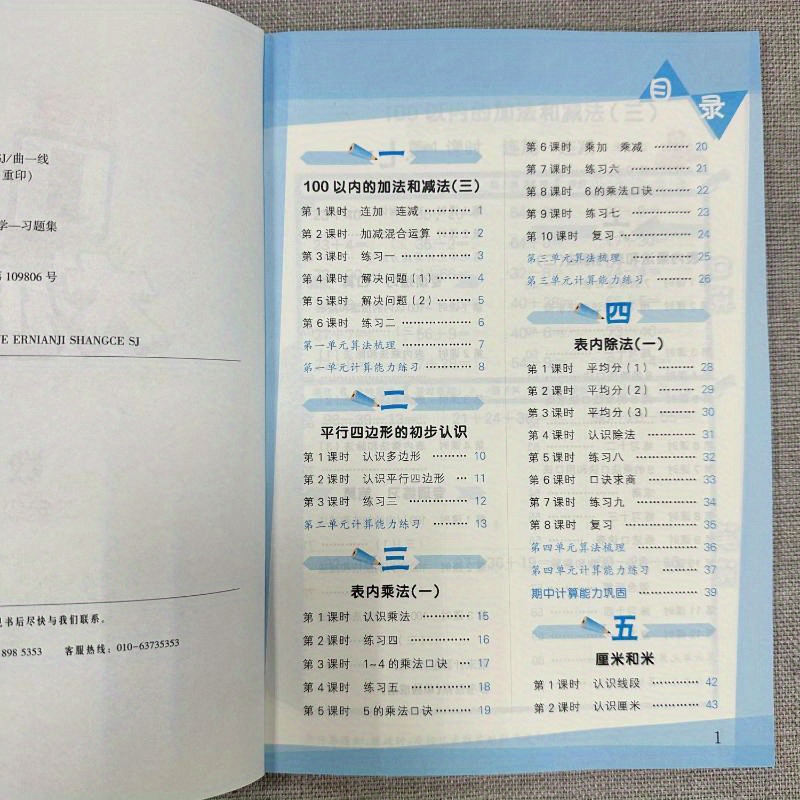 SJ/曲一线
重印)
学—习题集
第 109806 号
E ERNIANJI SHANGCE SJ
见书后尽快与我们联系。
898 5353 客服热线:010-63735353
目录
一
100 以内的加法和减法(三)
第 1 课时 连加 连减 ………… 1
第 2 课时 加减混合运算 ……… 2
第 3 课时 练习一 …………… 3
第 4 课时 解决问题(1) ……… 4
第 5 课时 解决问题(2) ……… 5
第 6 课时 练习二 …………… 6
第一单元算法梳理 …………… 7
第一单元计算能力练习 ……… 8
二
平行四边形的初步认识
第 1 课时 认识多边形 ……… 10
第 2 课时 认识平行四边形 … 11
第 3 课时 练习三 …………… 12
第二单元计算能力练习 ……… 13
三
表内乘法(一)
第 1 课时 认识乘法 ………… 15
第 2 课时 练习四 …………… 16
第 3 课时 1~4 的乘法口诀 … 17
第 4 课时 练习五 …………… 18
第 5 课时 5 的乘法口诀 …… 19
第 6 课时 乘加 乘减 ……… 20
第 7 课时 练习六 …………… 21
第 8 课时 6 的乘法口诀 …… 22
第 9 课时 练习七 …………… 23
第 10 课时 复习 …………… 24
第三单元算法梳理 …………… 25
第三单元计算能力练习 ……… 26
四
表内除法(一)
第 1 课时 平均分(1) ……… 28
第 2 课时 平均分(2) ……… 29
第 3 课时 平均分(3) ……… 30
第 4 课时 认识除法 ………… 31
第 5 课时 练习八 …………… 32
第 6 课时 口诀求商 ………… 33
第 7 课时 练习九 …………… 34
第 8 课时 复习 ……………… 35
第四单元算法梳理 …………… 36
第四单元计算能力练习 ……… 37
期中计算能力巩固 …………… 39
五
厘米和米
第 1 课时 认识线段 ………… 42
第 2 课时 认识厘米 ………… 43
1